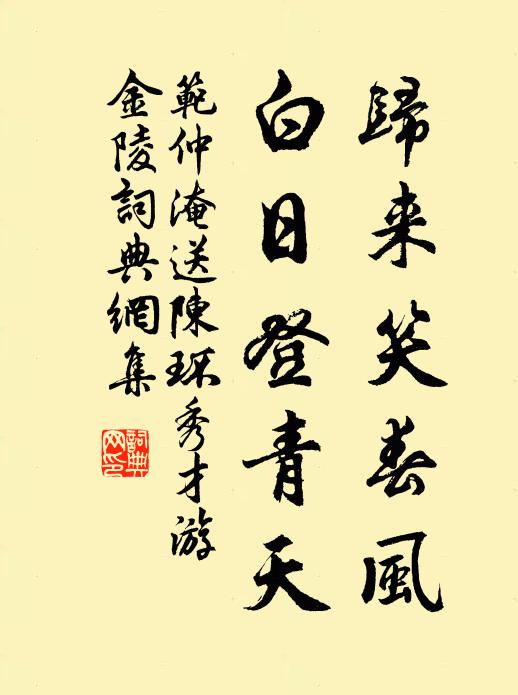 歸来笑春風
白日登青天
範仲淹送陳琢秀才游
金陵詞典網集
詞典网印